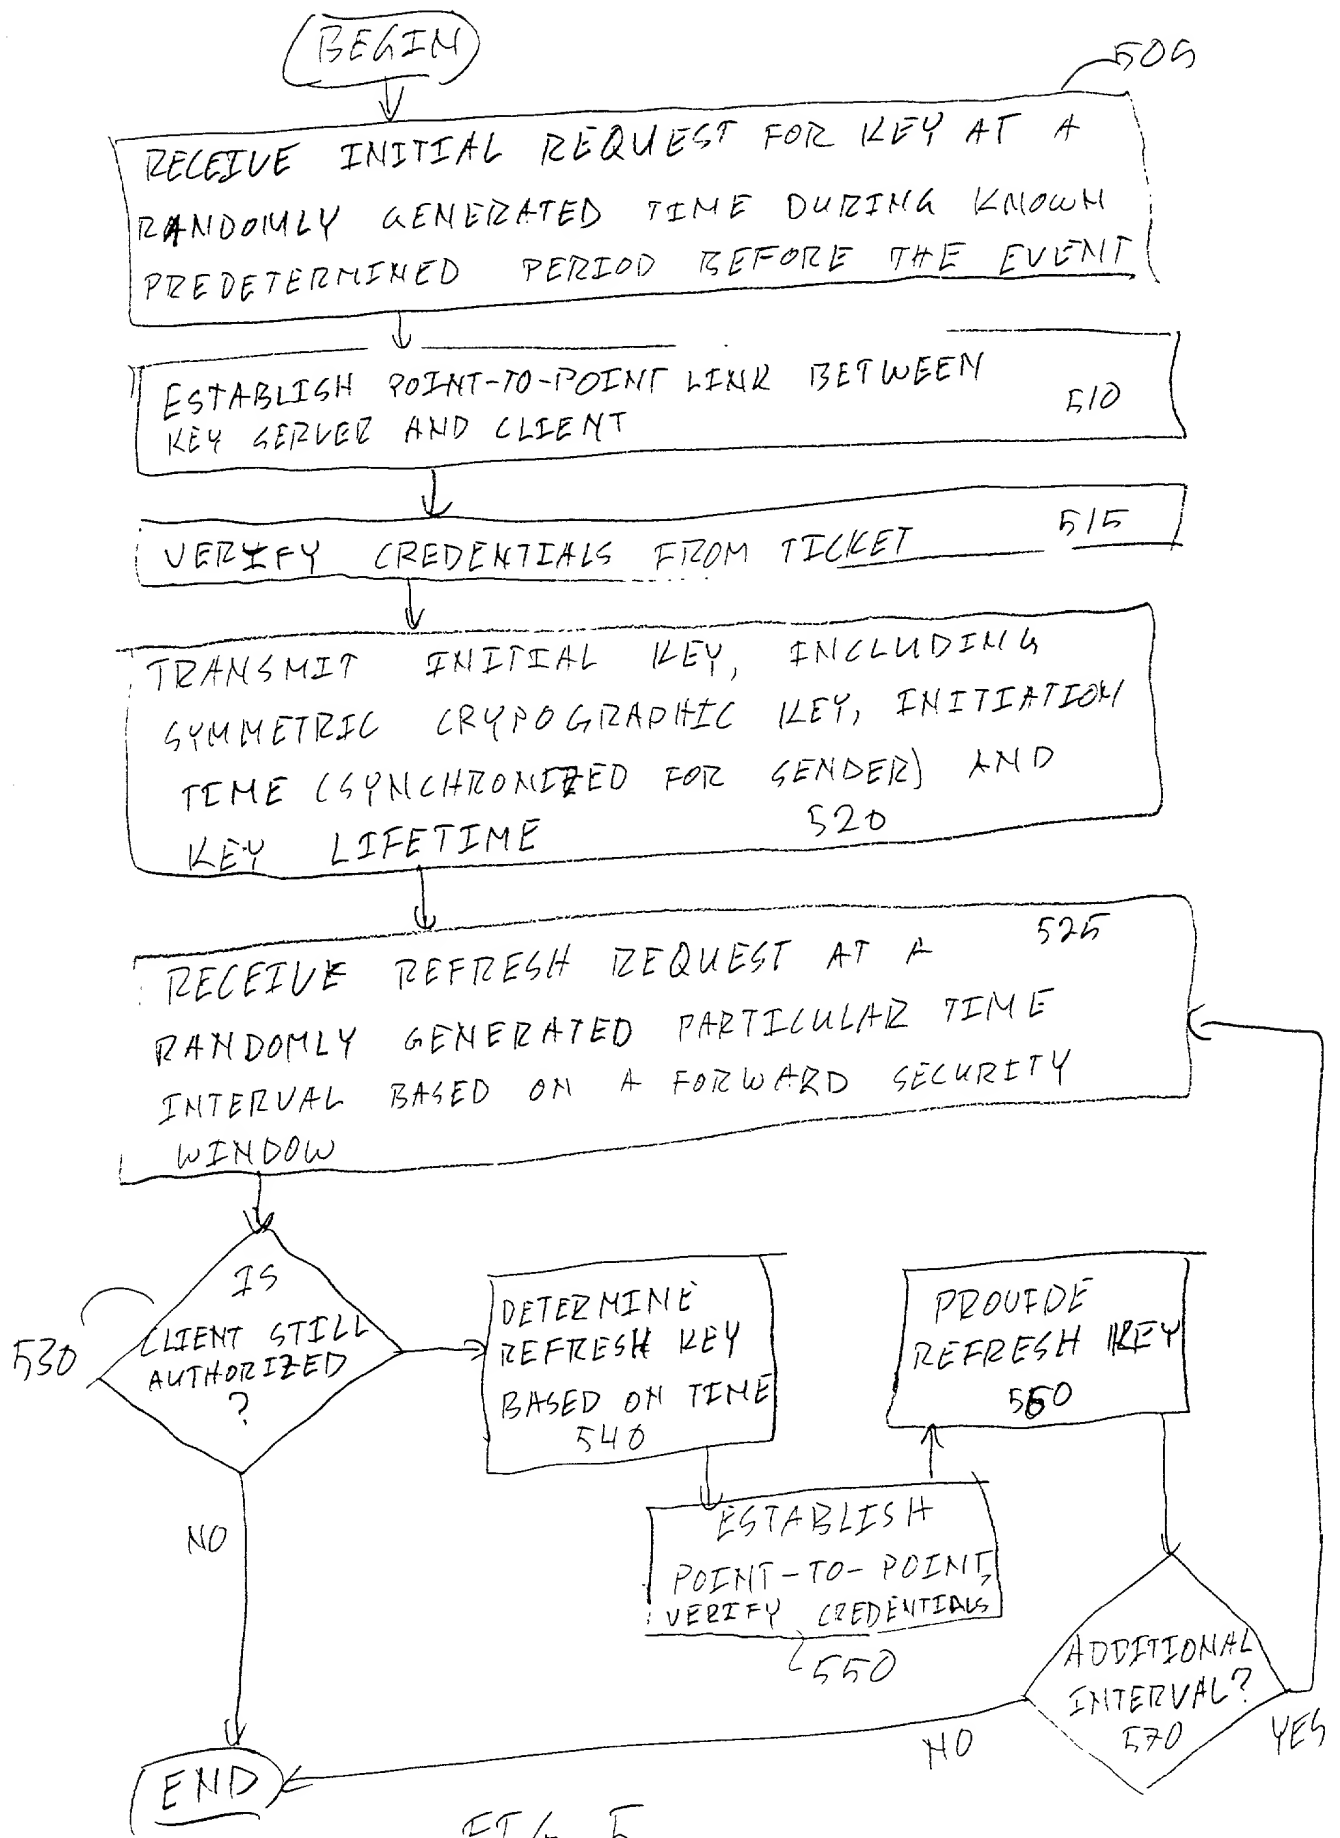 BEGIN
505
RECEIVE INITIAL REQUEST FOR KEY AT A
RANDOMLY GENERATED TIME DURING KNOWN
PREDETERMINED PERIOD BEFORE THE EVENT
ESTABLISH POINT-TO-POINT LINK BETWEEN
KEY SERVER AND CLIENT
510
VERIFY CREDENTIALS FROM TICKET 515
TRANSMIT INITIAL KEY, INCLUDING
SYMMETRIC CRYPOGRAPHIC KEY, INITIATION
TIME (SYNCHRONIZED FOR SENDER) AND
KEY LIFETIME 520
525
RECEIVE REFRESH REQUEST AT A
RANDOMLY GENERATED PARTICULAR TIME
INTERVAL BASED ON A FORWARD SECURITY
WINDOW
530
IS
CLIENT STILL
AUTHORIZED
?
NO
DETERMINE
REFRESH KEY
BASED ON TIME
540
ESTABLISH
POINT-TO-POINT,
VERIFY CREDENTIALS
550
PROVIDE
REFRESH KEY
560
ADDITIONAL
INTERVAL?
570
YES
NO
END
FIG. 5